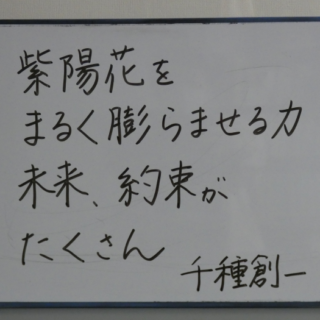 紫陽花を
まるく膨らませる力
未来、約束が
たくさん
千種創一